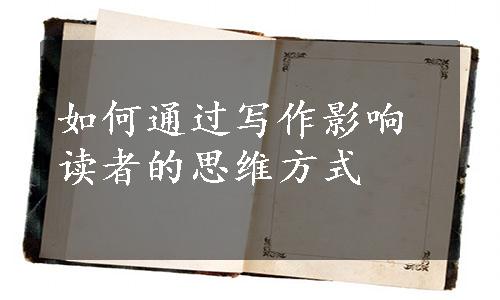 如何通过写作影响
读者的思维方式